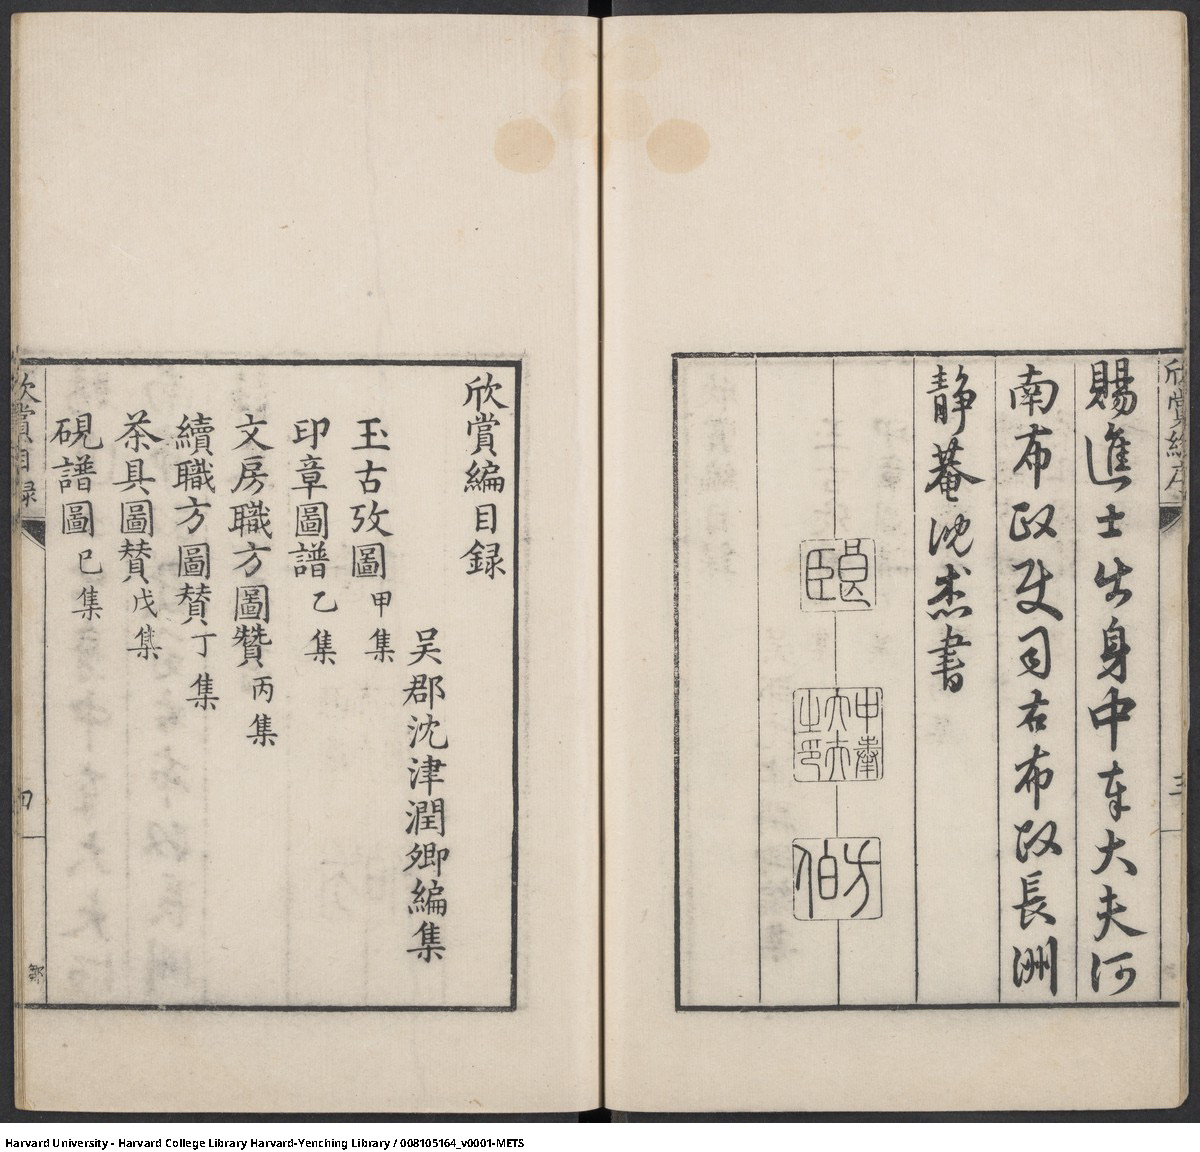 賜進士出身中奉大夫河
南布政使司右布政長洲
靜菴沈杰書
頤
中奉大夫之印
欣賞編目錄
吴郡沈津潤卿編集
玉古攷圖甲集
印章圖譜乙集
文房職方圖贊丙集
續職方圖賛丁集
茶具圖賛戊集
硯譜圖巳集
鄒
Harvard University - Harvard College Library Harvard-Yenching Library / 008105164_v0001-METS